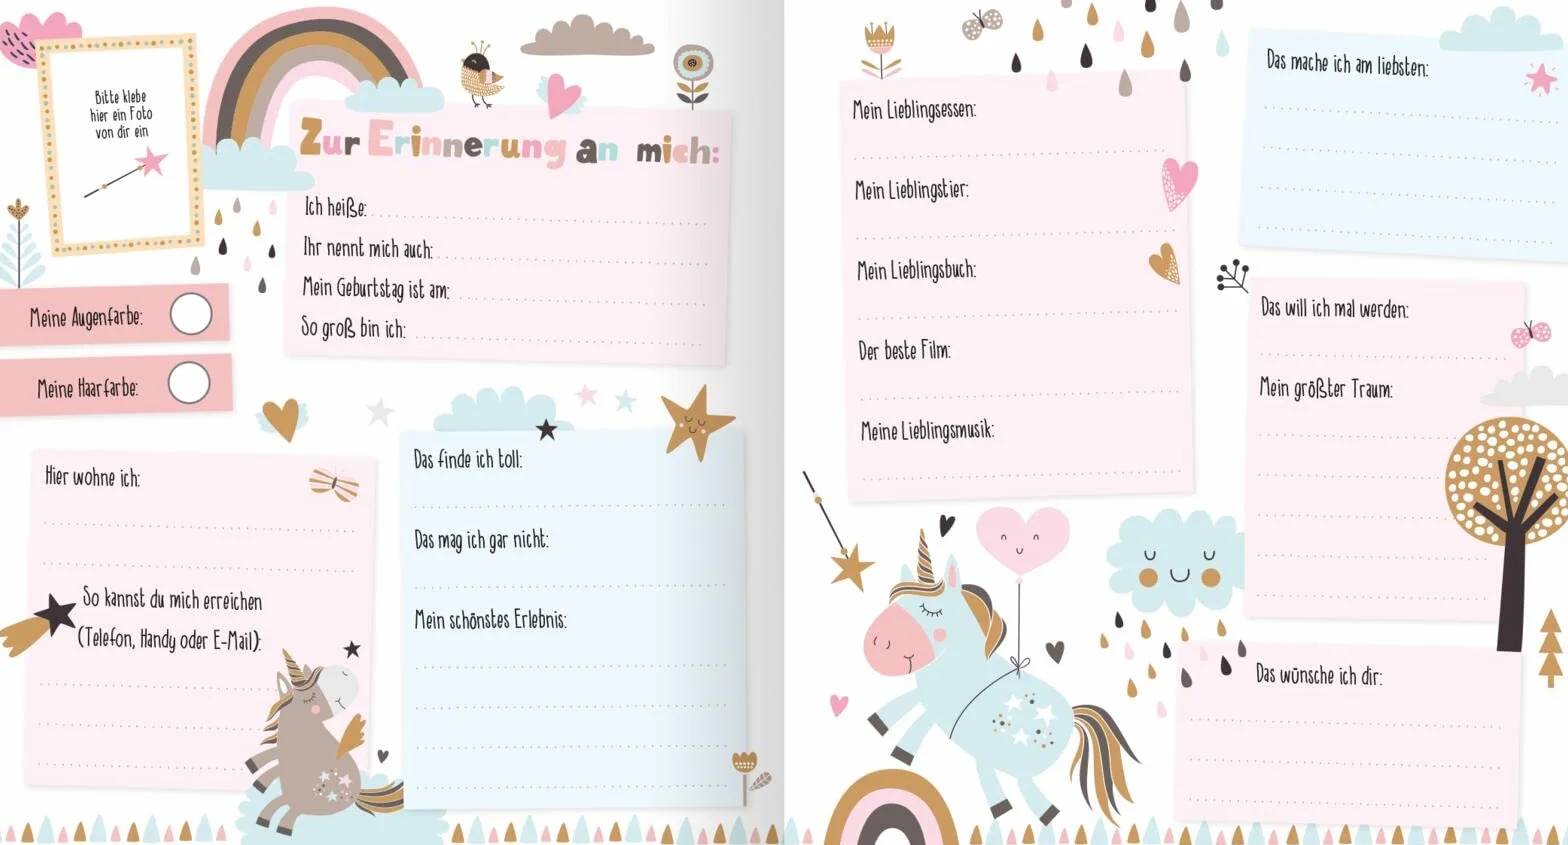 Bitte klebe
hier ein Foto
von dir ein
Zur Erinnerung an mich:
Ich heiße:
Ihr nennt mich auch:
Mein Geburtstag ist am:
So groß bin ich:
Meine Augenfarbe:
Meine Haarfarbe:
Hier wohne ich:
So kannst du mich erreichen
(Telefon, Handy oder E-Mail):
Das finde ich toll:
Das mag ich gar nicht:
Mein schönstes Erlebnis:
Mein Lieblingsessen:
Mein Lieblingstier:
Mein Lieblingsbuch:
Der beste Film:
Meine Lieblingsmusik:
Das mache ich am liebsten:
Das will ich mal werden:
Mein größter Traum:
Das wünsche ich dir: